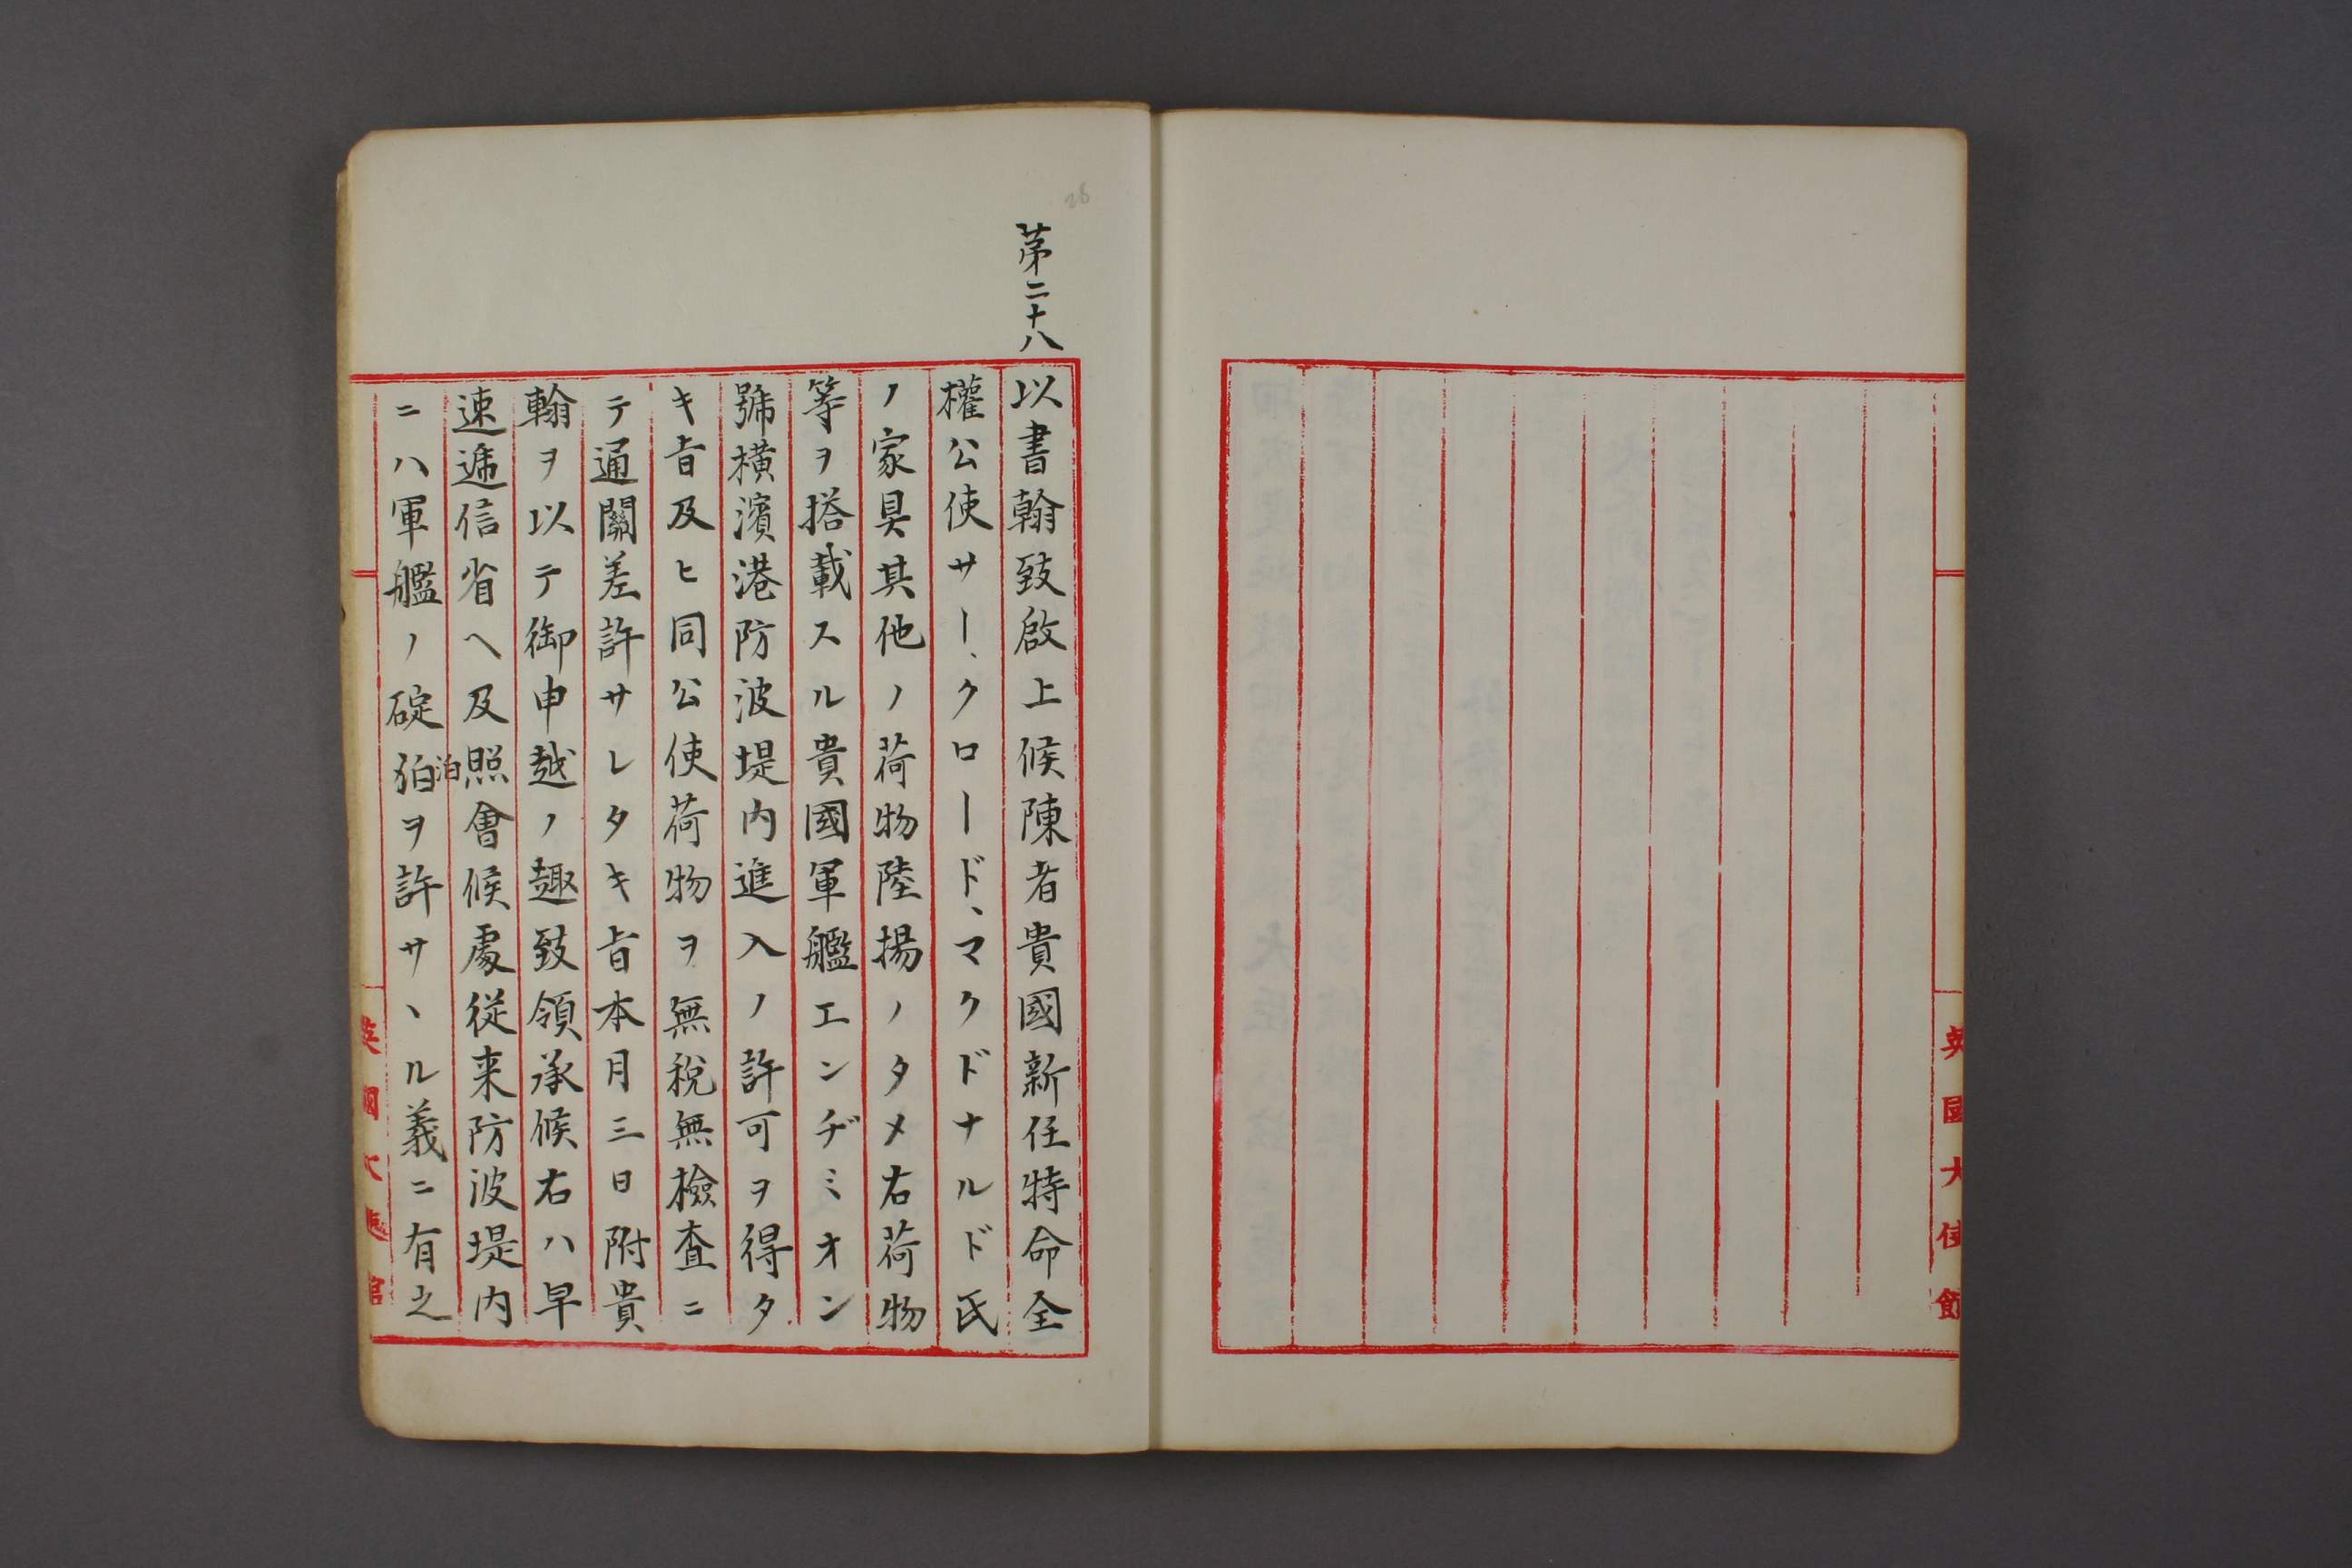 英國大使館
26
第二十八
以書翰致啟上候陳者貴國新任特命全
權公使サー、クロード、マクドナルド氏
ノ家具其他ノ荷物陸揚ノタメ右荷物
等ヲ搭載スル貴國軍艦エンヂミオン
號橫濱港防波堤內進入ノ許可ヲ得タ
キ旨及ヒ同公使荷物ヲ無稅無檢査ニ
テ通關差許サレタキ旨本月三日附貴
翰ヲ以テ御申越ノ趣致領承候右ハ早
速遞信省ヘ及照會候處從来防波堤內
ニハ軍艦ノ碇狛ヲ許サヽル義ニ有之
泊
英國大使館